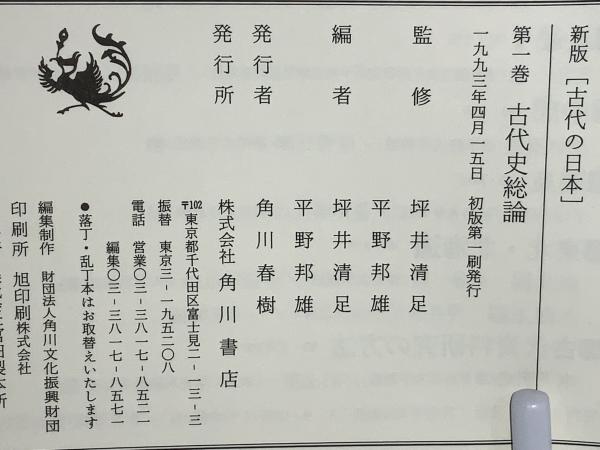 新版［古代の日本］
第一巻 古代史総論
一九九三年四月一五日 初版第一刷発行
監修 坪井清足
平野邦雄
編者 坪井清足
平野邦雄
発行者 角川春樹
発行所 株式会社 角川書店
〒102 東京都千代田区富士見二-一三-三
振替 東京三-一九五二〇八
電話 営業〇三-三八一七-八五二一
編集〇三-三八一七-八五七一
●落丁・乱丁本はお取替えいたします
編集制作 財団法人角川文化振興財団
印刷所 旭印刷株式会社